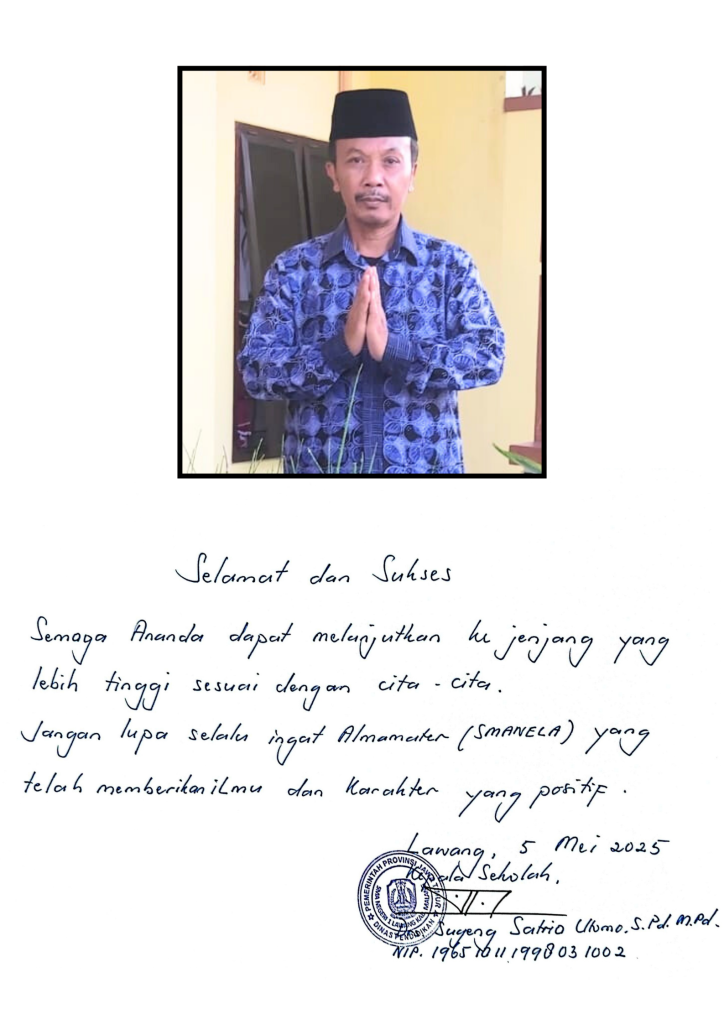 Selamat dan Sukses
Semoga Ananda dapat melanjutkan ke jenjang yang
lebih tinggi sesuai dengan cita - cita.
Jangan lupa selalu ingat Almamater (SMANELA) yang
telah memberikan ilmu dan Karakter yang positif.
Lawang, 5 Mei 2025
Kepala Sekolah,
PEMERINTAH PROVINSI JAWA TIMUR
SMA NEGERI 1 LAWANG KAB. MALANG
DINAS PENDIDIKAN
Sugeng Satrio Utomo, S.Pd. M.Pd.
NIP. 19651011 199803 1002